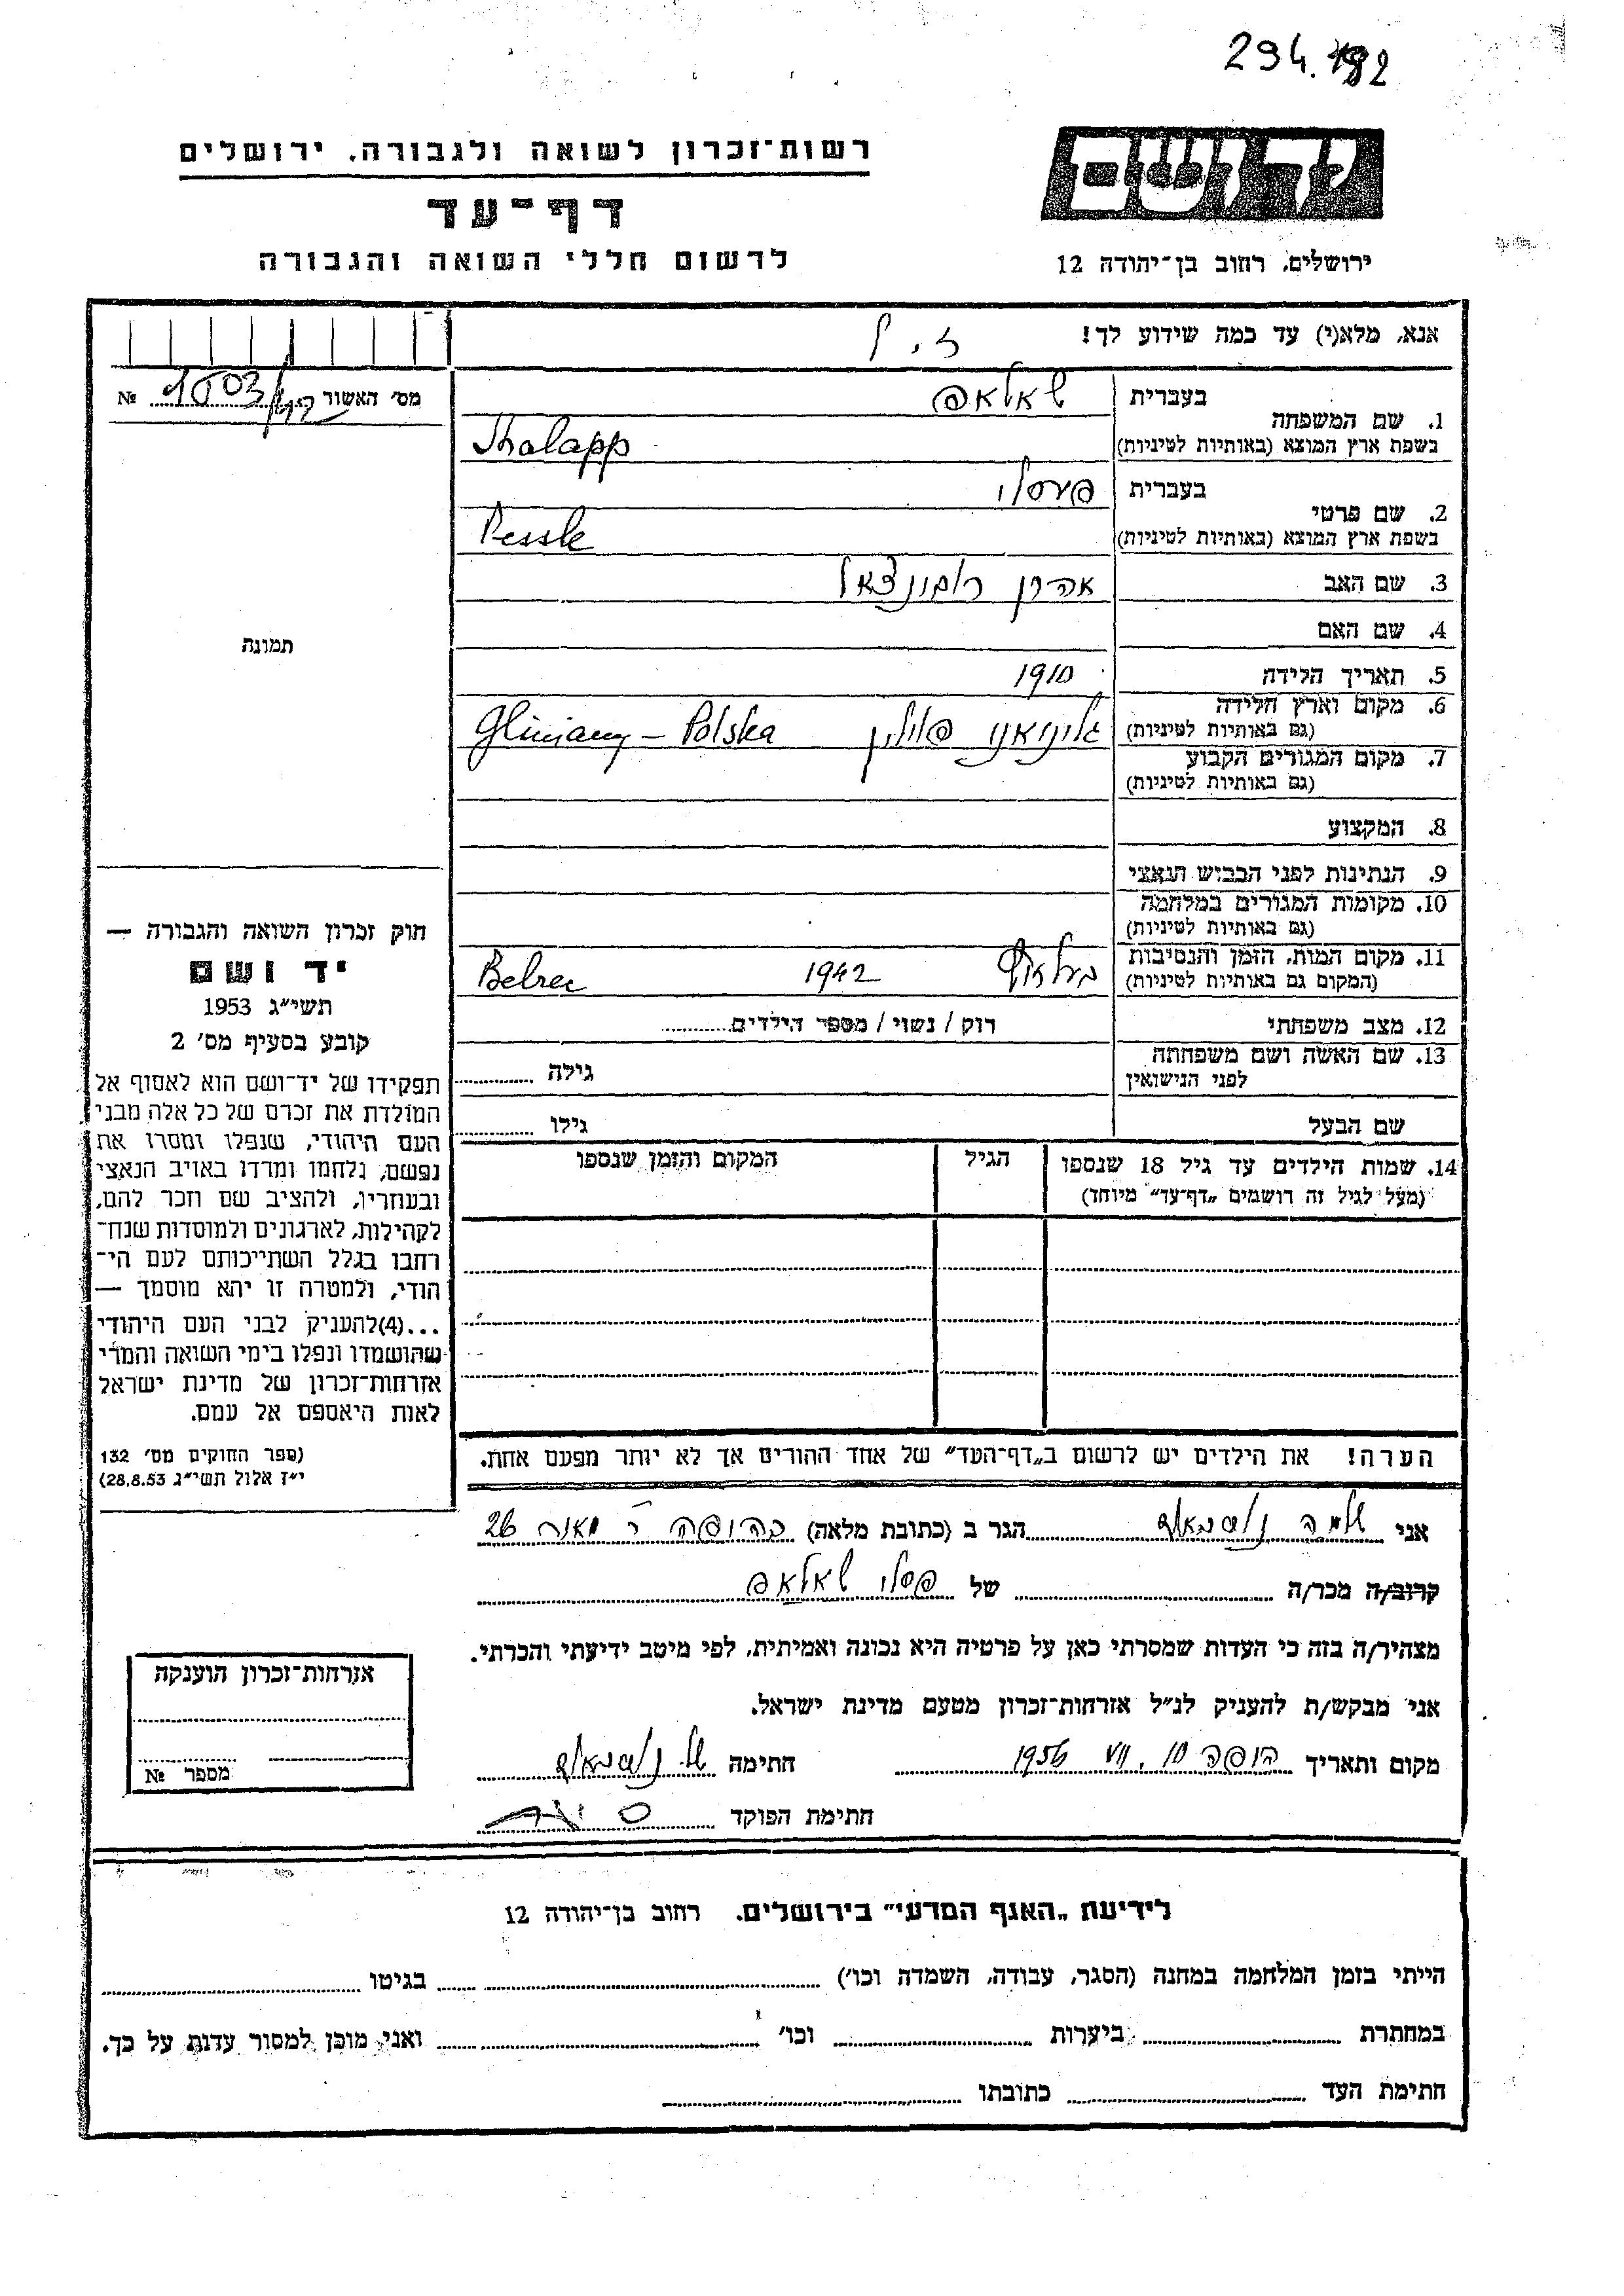 294.192
רשות־זכרון לשואה ולגבורה, ירושלים
דף־עד
לרשום חללי השואה והגבורה
יד ושם
ירושלים, רחוב בן־יהודה 12
אנא, מלא(י) עד כמה שידוע לך!
מס׳ האשור № 1503
1. שם המשפחה
בעברית שאלאפ
בשפת ארץ המוצא (באותיות לטיניות) Shalapp
2. שם פרטי
בעברית פעסלי
בשפת ארץ המוצא (באותיות לטיניות) Pessle
3. שם האב אהרן
4. שם האם
תמונה
5. תאריך הלידה 1910
6. מקום וארץ הלידה
(גם באותיות לטיניות) גלוניאני פולין Gliniany – Polska
7. מקום המגורים הקבוע
(גם באותיות לטיניות)
8. המקצוע
9. הנתינות לפני הכבוש הנאצי
10. מקומות המגורים במלחמה
(גם באותיות לטיניות)
11. מקום המות, הזמן והנסיבות
(המקום גם באותיות לטיניות) 1942 Belzec
12. מצב משפחתי רוק / נשוי / מספר הילדים
13. שם האשה ושם משפחתה
לפני הנישואין
גילה
שם הבעל
גילו
14. שמות הילדים עד גיל 18 שנספו
(מעל לגיל זה רושמים „דף־עד״ מיוחד)
הגיל
המקום והזמן שנספו
חוק זכרון השואה והגבורה —
יד ושם
תשי״ג 1953
קובע בסעיף מס׳ 2
תפקידו של יד־ושם הוא לאסוף אל
המולדת את זכרם של כל אלה מבני
העם היהודי, שנפלו ומסרו את
נפשם, נלחמו ומרדו באויב הנאצי
ובעוזריו, ולהציב שם וזכר להם,
לקהילות, לארגונים ולמוסדות שנח־
רחבו בגלל השתייכותם לעם הי־
הודי, ולמטרה זו יהא מוסמך —
...(4)להעניק לבני העם היהודי
שהושמדו ונפלו בימי השואה והמרי
אזרחות־זכרון של מדינת ישראל
לאות היאספם אל עמם.
(ספר החוקים מס׳ 132
י״ז אלול תשי״ג 28.8.53)
הערה! את הילדים יש לרשום ב„דף־העד״ של אחד ההורים אך לא יותר מפעם אחת.
אני הגר ב (כתובת מלאה) בחיפה 26
קרוב/ה מכר/ה של פסלי שאלאפ
מצהיר/ה בזה כי העדות שמסרתי כאן על פרטיה היא נכונה ואמיתית, לפי מיטב ידיעתי והכרתי.
אני מבקש/ת להעניק לנ״ל אזרחות־זכרון מטעם מדינת ישראל.
מקום ותאריך חיפה 10. VII 1956 חתימה
חתימת הפוקד
אזרחות־זכרון הוענקה
מספר №
לידיעת „האגף המדעי״ בירושלים, רחוב בן־יהודה 12
הייתי בזמן המלחמה במחנה (הסגר, עבודה, השמדה וכו׳) בגיטו
במחתרת ביערות וכו׳ ואני מוכן למסור עדות על כך.
חתימת העד כתובתו